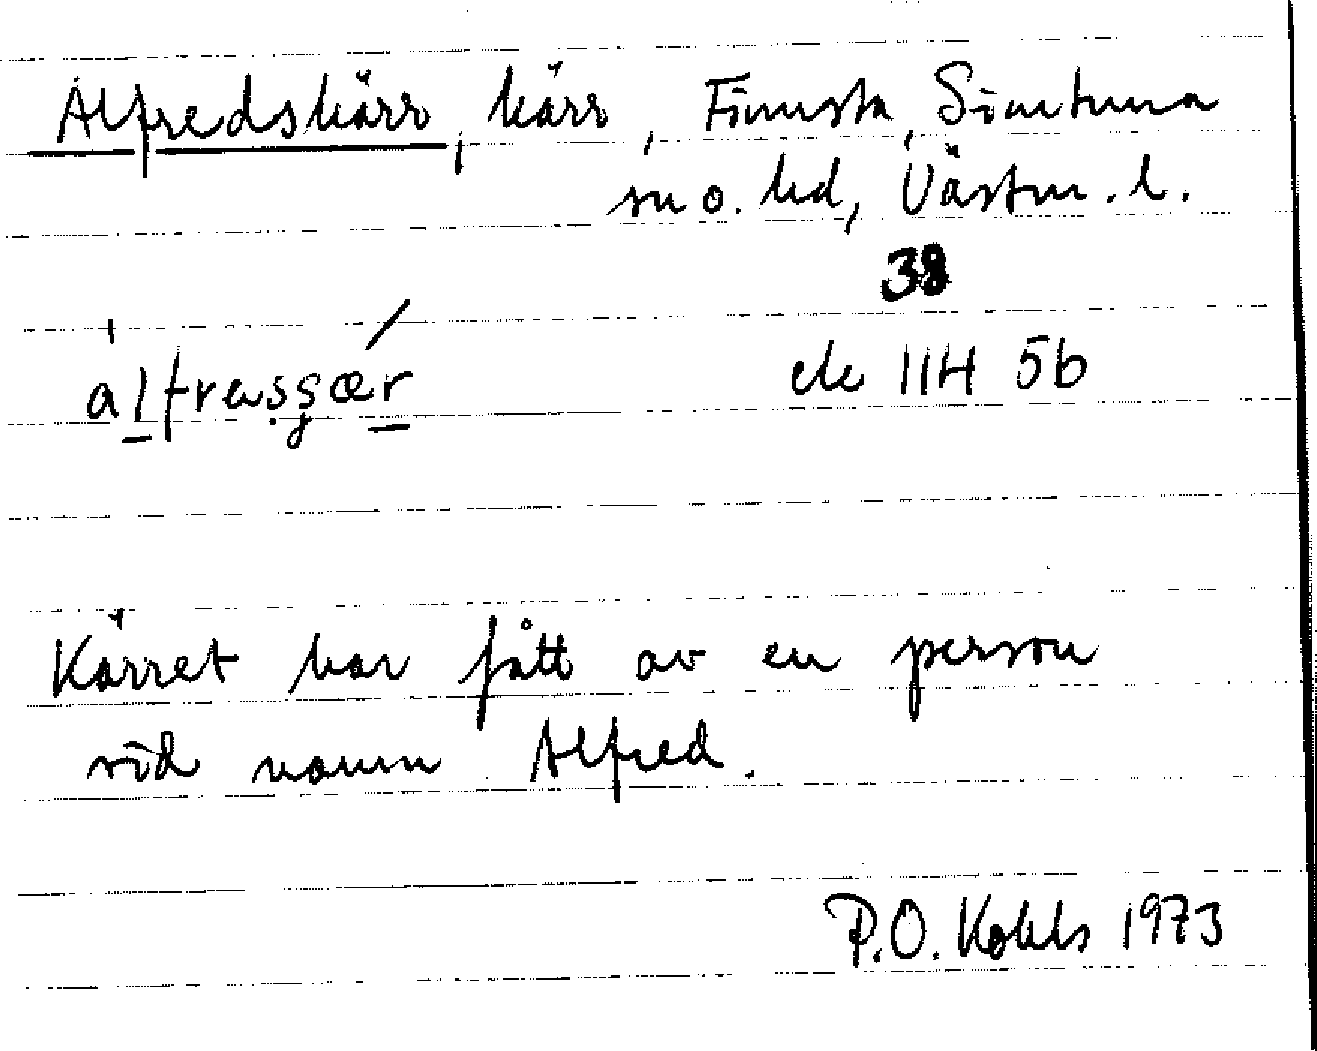 Alfredskärr, kärr, Finnsta, Simtuna
sn o. hd, Västm. l.
38
alfrasşær
ek 11H 5b
Kärret har fått av en person
vid namn Alfred.
P.O. Kohls 1973